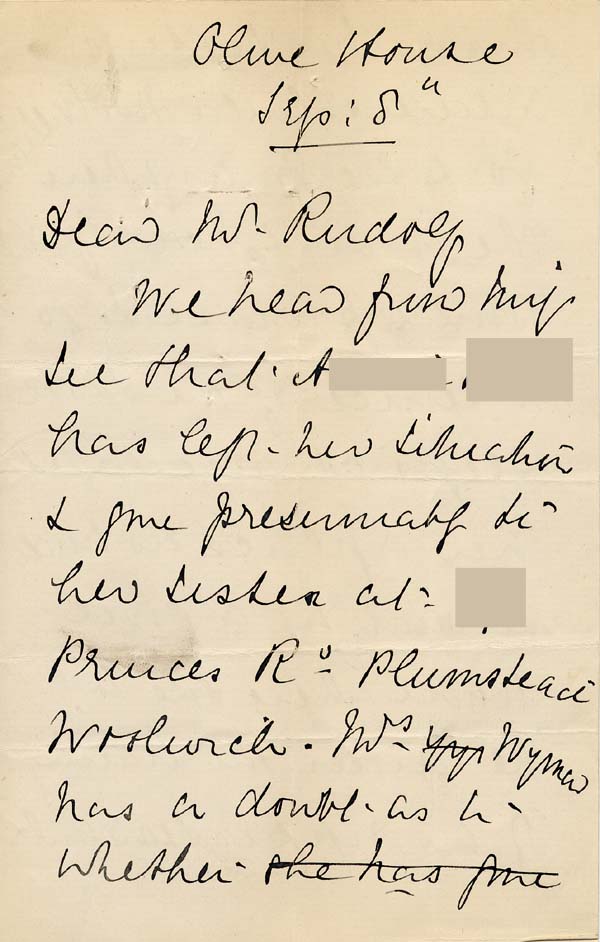 Olive House
Sep: 8"
Dear Mr. Rudolf
We hear from Miss
Lee that A
has left her situation
& gone presumably to
her sister at
Princes Rd Plumstead
Woolwich. Mrs Wyman
has a doubt as to
whether she has gone